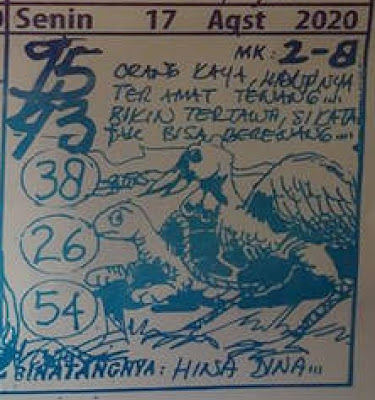 Senin 17 Aqst 2020
95
MK: 2-8
ORANG KAYA, HIDUPNYA
TER AMAT TENANG....
BIKIN TERTAWA, SI KATA
TAK BISA BERENANG....
93
38
26
54
BINATANGNYA: HINA DINA...